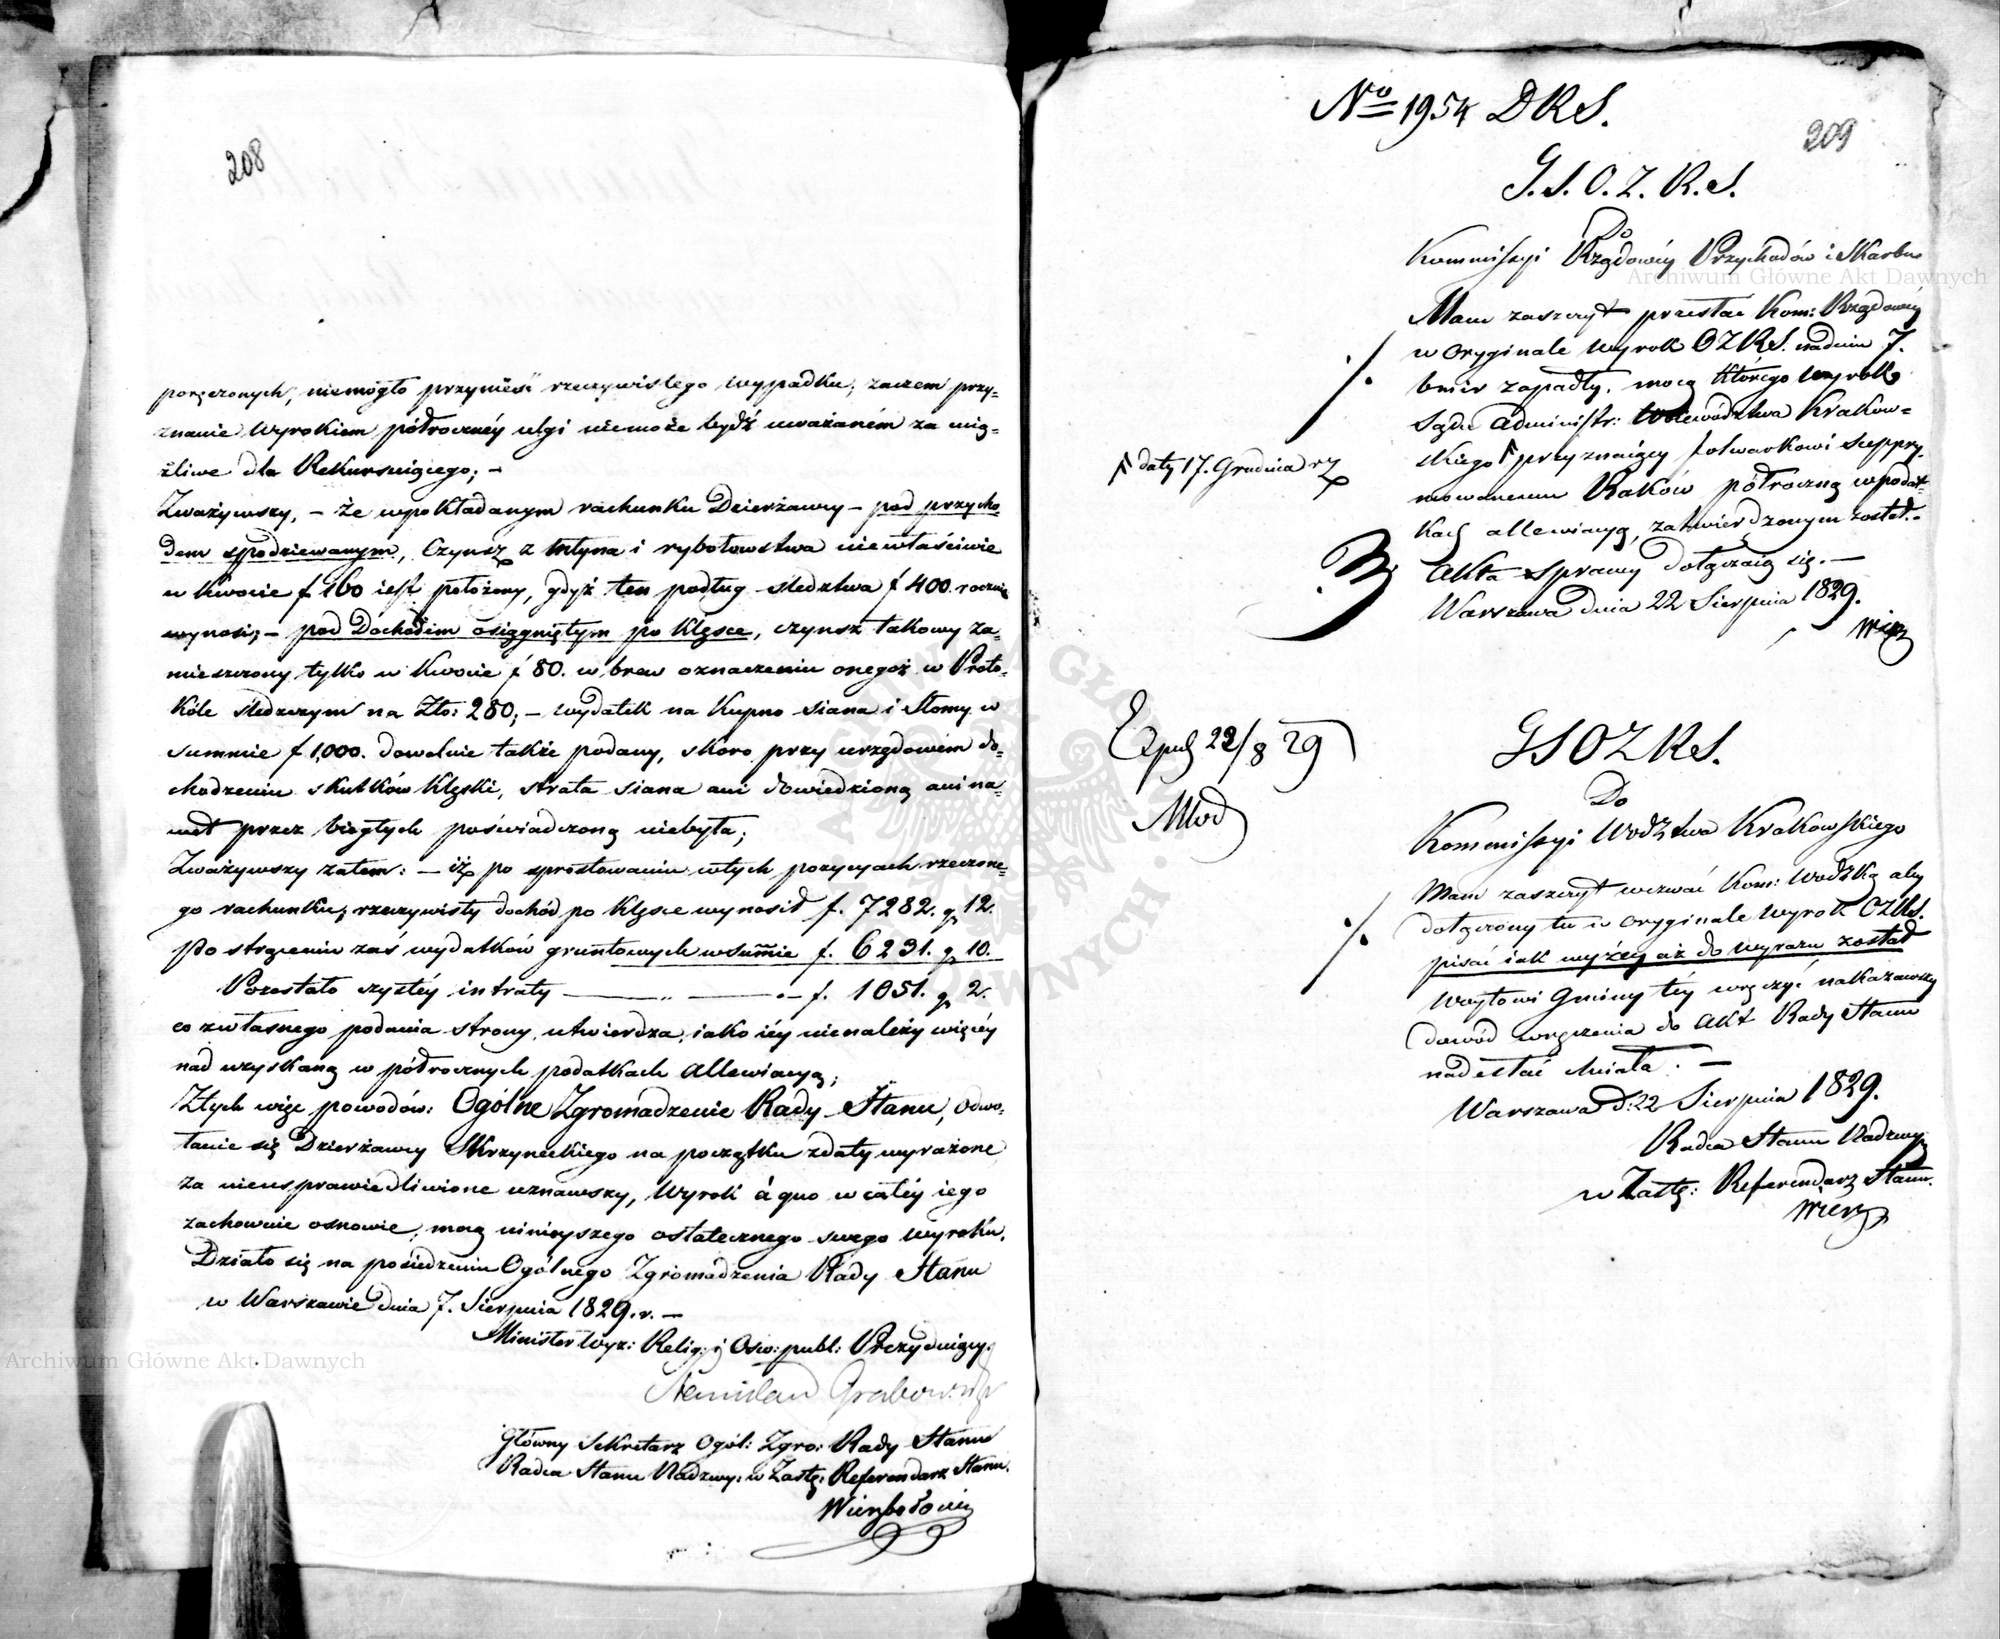 208
poręczonych, niemogło przynieść rzeczywistego wypadku, zaczem przy-
znanie Wyrokiem półroczney ulgi niemoże bydź uważaném za ucią-
żliwe dla Rekursuiącego; –
Zważywszy, – że w pokładanym rachunku Dzierżawcy – pod przycho-
dem spodziewanym, Czynsz z Młyna i rybołowstwa niewłaściwie
w kwocie f 160 iest położony, gdyż ten podług śledztwa f 400 rocznie
wynosi; – pod Dochodem osiągniętym po klęsce, czynsz takowy za-
mieszczony tylko w kwocie f 80. w brew oznaczeniu onegoż w Proto-
kóle śledczym na Zło: 280; – wydatek na kupno siana i słomy w
summie f 1,000. dowolnie także podany, skoro przy urzędowém do-
chodzeniu skutków klęski, strata siana ani dowiedzioną ani na-
wet przez biegłych poświadczoną niebyła;
Zważywszy zatem: – iż po sprostowaniu w tych pozycyach rzeczone-
go rachunku, rzeczywisty dochód po klęsce wynosił f. 7282. g 12.
Po strąceniu zaś wydatków gruntowych w summie f. 6231. g 10.
Pozostało czystéy intraty — „ — „ – f. 1051. g 2.
co z własnego podania strony, utwierdza, iako iéy nienależy więcéy
nad uzyskaną w półrocznych podatkach allewiacyą;
Z tych więc powodów: Ogólne Zgromadzenie Rady Stanu, odwo-
łanie się Dzierżawcy Skrzyneckiego na początku z daty wyrażone
za nieusprawiedliwione uznawszy, Wyrok á quo w całéy iego
zachowuie osnowie, mocą ninieyszego ostatecznego swego wyroku.
Działo się na posiedzeniu Ogólnego Zgromadzenia Rady Stanu
w Warszawie dnia 7. Sierpnia 1829. r. –
Minister Wyz: Relig: i Ośw: publ: Prezyduiący.
Stanisław Grabowski
Główny Sekretarz Ogól: Zgro: Rady Stanu
Radca Stanu Nadzwy: w Zastę: Referendarz Stanu.
Wierzbołowicz
Nº 1954 DRS.
209
G. S. O. Z. R. S.
Do
Kommissyi Rządowéy Przychodów i Skarbu
Mam zaszczyt przesłać Kom: Rządowéy
w oryginale Wyrok OZRS. na dniu 7.
bmies zapadły, mocą którego Wyrok
Sądu Administr: Województwa Krakow-
skiego przyznaiący folwarkowi suppry-
daty 17. Grudnia
mowanemu Raków półroczną w podat-
kach allewiacyą, zatwierdzonym został.
Akta sprawy dołączaią się. –
Warszawa dnia 22 Sierpnia 1829.
Wierz
Exped 22/8 29
Młod
GSOZRS.
Do
Kommissyi Wodztwa Krakowskiego
Mam zaszczyt wezwać Kom: Wodzką aby
dołączony tu w oryginale Wyrok OZRS.
pisać iak wyżéy aż do wyrazu został
Wóytowi Gminy téy wręczyć nakazawszy
dowód wręczenia do Akt Rady Stanu
nadesłać chciała. –
Warszawa d: 22 Sierpnia 1829.
Radca Stanu Nadzwy
w Zastę: Referendarz Stanu.
Wierz
Archiwum Główne Akt Dawnych
Archiwum Główne Akt Dawnych